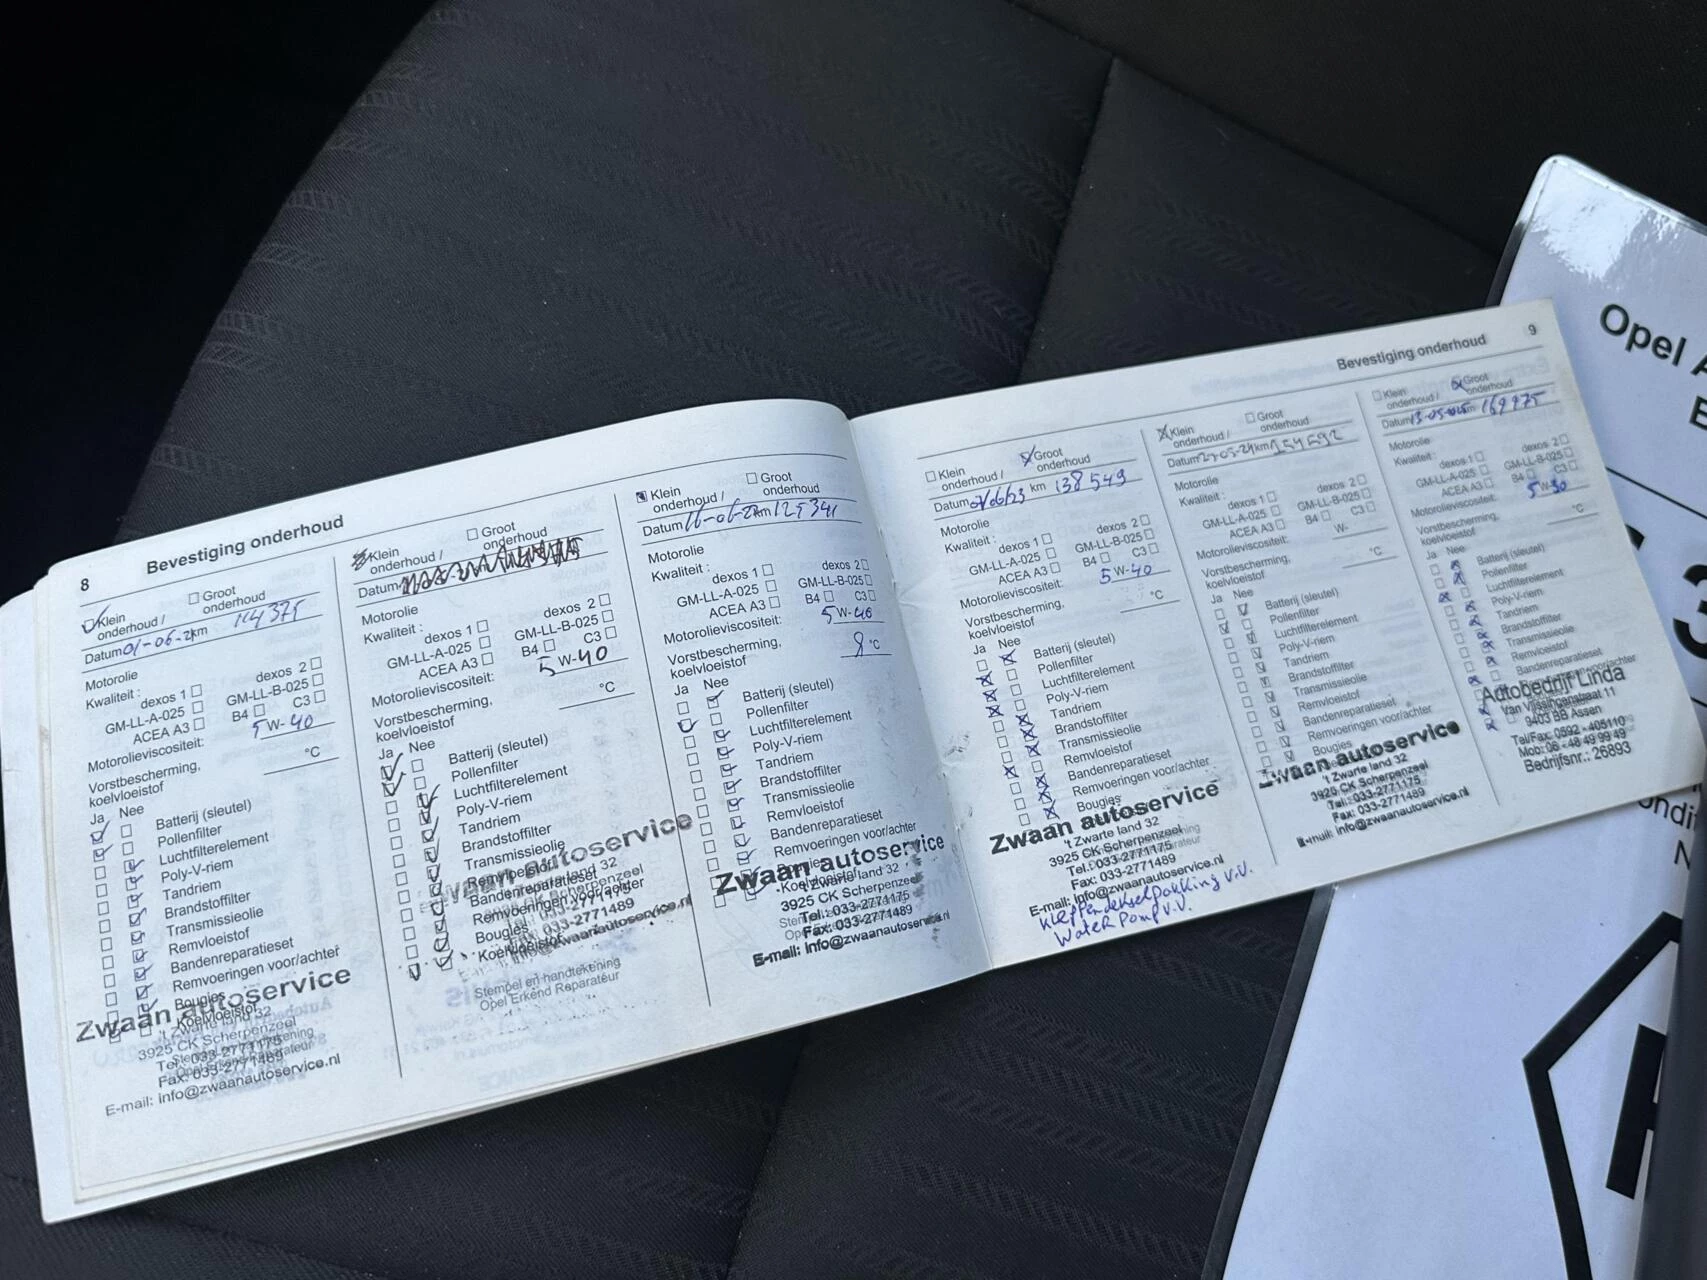 8
Bevestiging onderhoud
Klein
onderhoud /
Groot
onderhoud
Datum 01-06-2 km 114375
Motorolie
Kwaliteit :
dexos 1
dexos 2
GM-LL-A-025
GM-LL-B-025
ACEA A3
B4
C3
Motorolieviscositeit: 5 W- 40
Vorstbescherming,
koelvloeistof
°C
Ja Nee
Batterij (sleutel)
Pollenfilter
Luchtfilterelement
Poly-V-riem
Tandriem
Brandstoffilter
Transmissieolie
Remvloeistof
Bandenreparatieset
Remvoeringen voor/achter
Bougies
Koelvloeistof
Zwaan autoservice
't Zwarte land 32
3925 CK Scherpenzeel
Tel.: 033-2771175
Fax: 033-2771489
E-mail: info@zwaanautoservice.nl
Klein
onderhoud /
Groot
onderhoud
Datum
Motorolie
Kwaliteit :
dexos 1
dexos 2
GM-LL-A-025
GM-LL-B-025
ACEA A3
B4
C3
Motorolieviscositeit: 5 W- 40
Vorstbescherming,
koelvloeistof
°C
Ja Nee
Batterij (sleutel)
Pollenfilter
Luchtfilterelement
Poly-V-riem
Tandriem
Brandstoffilter
Transmissieolie
Remvloeistof
Bandenreparatieset
Remvoeringen voor/achter
Bougies
Koelvloeistof
Zwaan autoservice
Stempel en handtekening
Opel Erkend Reparateur
Klein
onderhoud /
Groot
onderhoud
Datum 16-06-22 km 125341
Motorolie
Kwaliteit :
dexos 1
dexos 2
GM-LL-A-025
GM-LL-B-025
ACEA A3
B4
C3
Motorolieviscositeit: 5 W- 40
Vorstbescherming,
koelvloeistof
°C
Ja Nee
Batterij (sleutel)
Pollenfilter
Luchtfilterelement
Poly-V-riem
Tandriem
Brandstoffilter
Transmissieolie
Remvloeistof
Bandenreparatieset
Remvoeringen voor/achter
Bougies
Koelvloeistof
Zwaan autoservice
't Zwarte land 32
3925 CK Scherpenzeel
Tel.: 033-2771175
Fax: 033-2771489
E-mail: info@zwaanautoservice.nl
Bevestiging onderhoud
9
Klein
onderhoud /
Groot
onderhoud
Datum 01/06/23 km 138549
Motorolie
Kwaliteit :
dexos 1
dexos 2
GM-LL-A-025
GM-LL-B-025
ACEA A3
B4
C3
Motorolieviscositeit: 5 W- 40
Vorstbescherming,
koelvloeistof
°C
Ja Nee
Batterij (sleutel)
Pollenfilter
Luchtfilterelement
Poly-V-riem
Tandriem
Brandstoffilter
Transmissieolie
Remvloeistof
Bandenreparatieset
Remvoeringen voor/achter
Bougies
Zwaan autoservice
't Zwarte land 32
3925 CK Scherpenzeel
Tel.: 033-2771175
Fax: 033-2771489
E-mail: info@zwaanautoservice.nl
Kleppendekselpakking v.v.
Waterpomp v.v.
Klein
onderhoud /
Groot
onderhoud
Datum km 154592
Motorolie
Kwaliteit :
dexos 1
dexos 2
GM-LL-A-025
GM-LL-B-025
ACEA A3
B4
C3
Motorolieviscositeit: W-
Vorstbescherming,
koelvloeistof
°C
Ja Nee
Batterij (sleutel)
Pollenfilter
Luchtfilterelement
Poly-V-riem
Tandriem
Brandstoffilter
Transmissieolie
Remvloeistof
Bandenreparatieset
Remvoeringen voor/achter
Bougies
Zwaan autoservice
't Zwarte land 32
3925 CK Scherpenzeel
Tel.: 033-2771175
Fax: 033-2771489
E-mail: info@zwaanautoservice.nl
Klein
onderhoud /
Groot
onderhoud
Datum 13-05-2025 km 169975
Motorolie
Kwaliteit :
dexos 1
dexos 2
GM-LL-A-025
GM-LL-B-025
ACEA A3
B4
C3
Motorolieviscositeit: 5 W- 30
Vorstbescherming,
koelvloeistof
°C
Ja Nee
Batterij (sleutel)
Pollenfilter
Luchtfilterelement
Poly-V-riem
Tandriem
Brandstoffilter
Transmissieolie
Remvloeistof
Bandenreparatieset
Autobedrijf Linda
Van Vlissingenstraat 11
9403 BB Assen
Tel/Fax: 0592 - 405110
Mob: 06 - 48 49 99 49
Bedrijfsnr.: 26893
Opel